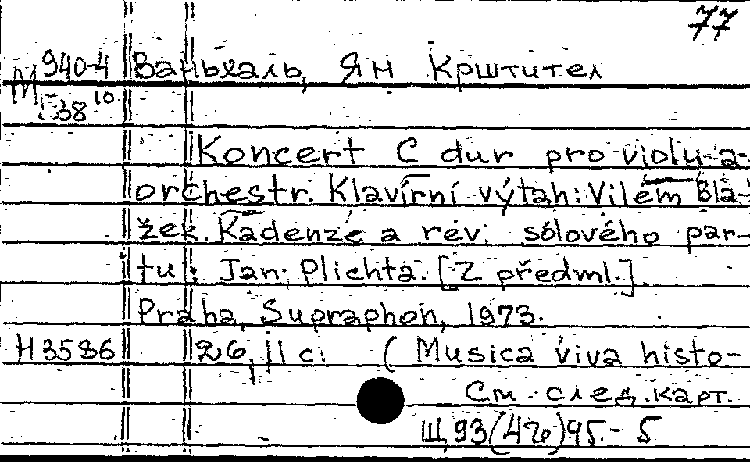 77
М 940-4 Ваньхаль, Ян Крштител
38 10
Koncert C dur pro violu a
orchestr. Klavírní výtah: Vilém Blá-
žek. Kadenze a rev. sólového par-
tu: Jan Plichta. [Z předml.]
Praha, Supraphon, 1973.
Н3586 26, 11 с. (Musica viva histo-
См. след. карт.
Щ93(4Че)95.- 5